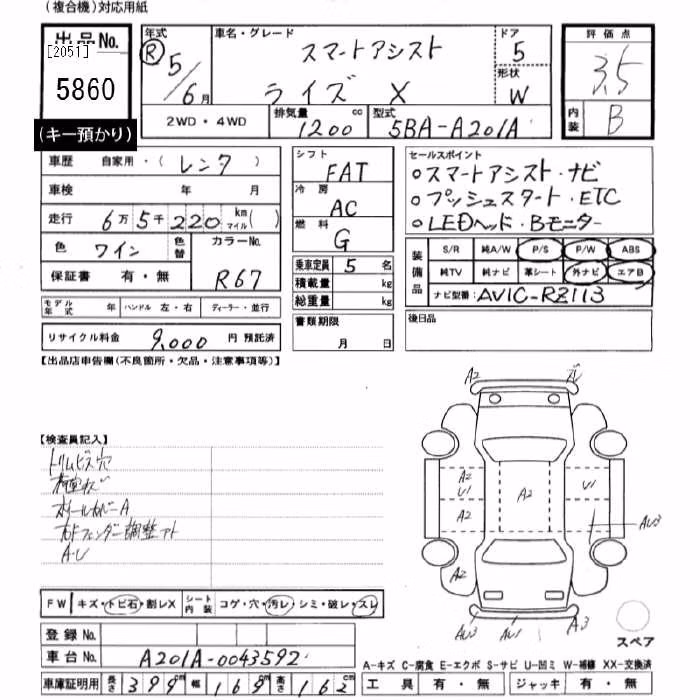 (複合機)対応用紙
出品No.
[2051]
5860
(キー預かり)
年式
R 5/6 月
車名・グレード
スマートアシスト
ライズ X
ドア
5
形状
W
2WD・4WD
排気量
1200 cc
型式
5BA-A201A
評価点
3.5
内装
B
車歴 自家用・(レンタ)
車検 年 月
走行 6万5千220 km マイル( )
色 ワイン 色替 カラーNo.
R67
保証書 有・無
モデル年式 年 ハンドル 左・右 ディーラー・並行
リサイクル料金 9,000 円 預託済
シフト
FAT
冷房
AC
燃料
G
乗車定員 5 名
積載量 kg
総重量 kg
書類期限
月 日
セールスポイント
○スマートアシスト・ナビ
○プッシュスタート・ETC
○LEDヘッド・Bモニター
装備品
S/R 純A/W P/S P/W ABS
純TV 純ナビ 革シート 外ナビ エアB
ナビ型番: AVIC-RZ113
後日品
【出品店申告欄(不良箇所・欠品・注意事項等)】
【検査員記入】
トリムビス穴
ホイールカバーA
右Fフェンダー調整アト
A・U
FW キズ・トビ石・割レX シート内装 コゲ・穴・汚レ・シミ・破レ・スレ
登録No.
車台No. A201A-0043592
車庫証明用 長さ 399 cm 幅 169 cm 高さ 162 cm
A2
A2
U1
A2
A2
U1
AU3
A2
AU3
AU1
A3
スペア
A-キズ C-腐食 E-エクボ S-サビ U-凹ミ W-補修 XX-交換済
工具 有・無 ジャッキ 有・無